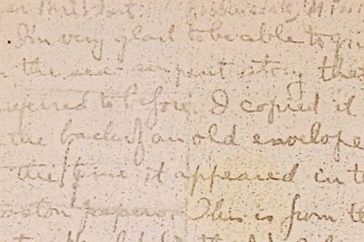 I'm very glad to be able to g
the sea serpent story tha
ferred to before. I copied it
the back of an old envelope
the time it appeared in t
Boston papers. This is from t